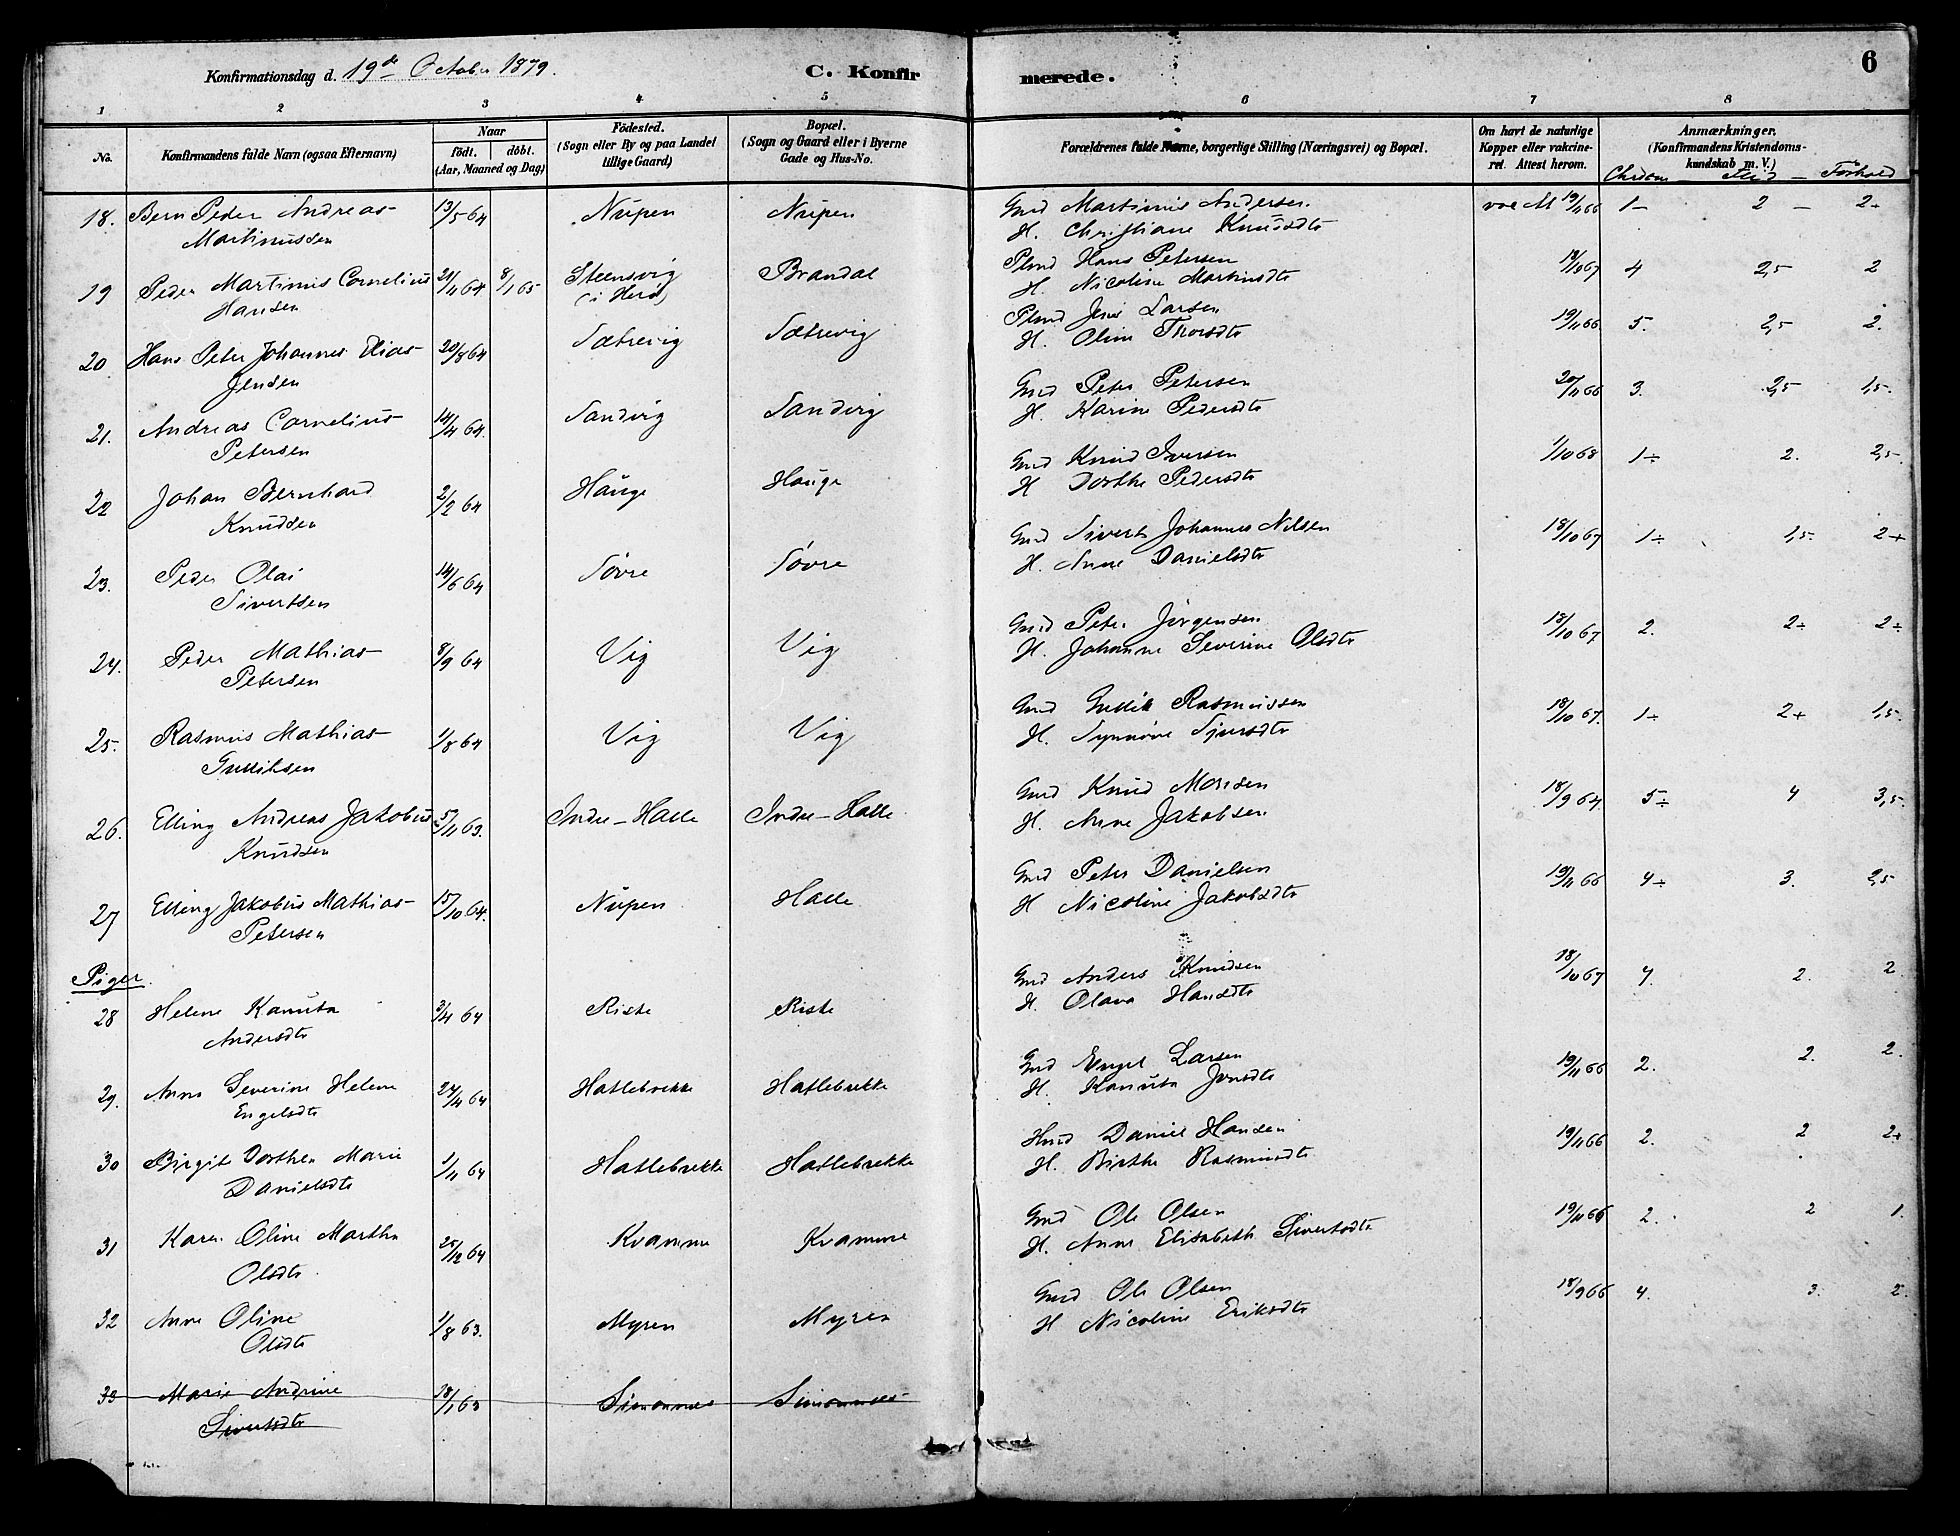 Konfirmationsdag d. 19de October 1879.
C. Konfirmerede.
6
1 2 3 4 5 6 7 8
No.
Konfirmandens fulde Navn (ogsaa Efternavn)
Naar
födt. döbt.
(Aar, Maaned og Dag)
Födested.
(Sogn eller By og paa Landet
tillige Gaard)
Bopæl.
(Sogn og Gaard eller i Byerne
Gade og Hus-No.
Forældrenes fulde Navne, borgerlige Stilling (Næringsvei) og Bopæl.
Om havt de naturlige
Kopper eller vakcine-
ret. Attest herom.
Anmærkninger.
(Konfirmandens Kristendoms-
kundskab m. V.)
Chrdom Flid Forhold
18. Bern Peder Andreas 13/5 64 Nupen Nupen Gmd Martinus Andersen vac M 19/11 66 1- 2 - 2+
Martinussen H. Christiane Knudsdtr
19 Peder Martinus Cornelius 21/11 64 8/1 65 Steensvig Brandal Plmd Hans Petersen 18/10 67 4 2,5 2
Hansen (i Herö) H. Nicoline Martinsdtr
20 Hans Peter Johannes Elias 20/8 64 Sætrevig Sætrevig Plmd Jens Larsen 19/11 66 5. 2,5 2.
Jensen H. Oline Thorsdtr
21. Andreas Cornelius 14/4 64. Sandvig Sandvig Gmd Peter Petersen 20/11 66 3. 2,5 1,5.
Petersen H. Karine Pedersdtr
22 Johan Bernhard 2/2 64 Hauge Hauge Gmd Knud Iversen 1/10 68 1÷ 2. 2,5.
Knudsen H Dorthe Pedersdtr
23. Peder Olai 14/6 64 Søvre Søvre Gmd Sivert Johannes Nilsen 18/10 67 1÷ 1,5. 2+
Sivertsen H. Anne Danielsdtr
24. Peder Mathias 8/9 64 Vig Vig Gmd Peter Jørgensen 18/10 67 2. 2÷ 2÷
Petersen H. Johanne Severine Olsdtr
25. Rasmus Mathias 1/8 64 Vig Vig Gmd Gullik Rasmussen 18/10 67. 1÷ 2+ 1,5.
Gulliksen H. Synnøve Sjursdtr
26. Elling Andreas Jakobus 5/11 63. Indre-Halle Indre-Halle Gmd Knud Monsen 18/9 64. 5÷ 4 3,5.
Knudsen H. Anne Jakobsen
27 Elling Jakobus Mathias 15/10 64. Nupen Halle Gmd Peter Danielsen 19/11 66 4÷ 3. 2,5
Petersen H Nicoline Jakobsdtr
Piger.
28 Helene Kanuta 3/4 64 Riste Riste Gmd Anders Knudsen 18/10 67 4. 2. 2.
Andersdtr H. Olava Hansdtr
29. Anne Severine Helene 24/4 64 Hatlebrekke Hatlebrekke Gmd Engel Larsen 19/11 66 2. 2. 2.
Engelsdtr H. Kanuta Jonsdtr
30 Birgit Dorthea Marie 1/11 64 Hatlebrekke Hatlebrekke Hmd Daniel Hansen 19/11 66 2. 2 2+
Danielsdtr H. Birthe Rasmusdtr
31 Karen Oline Martha 25/12 64 Kvamme Kvamme Gmd Ole Olsen 19/11 66 2. 2 1.
Olsdtr H. Anne Elisabeth Sivertsdtr
32 Anne Oline 1/8 63. Myren Myren Gmd Ole Olsen 18/9 66 4. 3. 2.
Olsdtr H Nicoline Eriksdtr
33 Marie Andrine 18/1 63 Simonnes Simonnes
Sivertsdtr